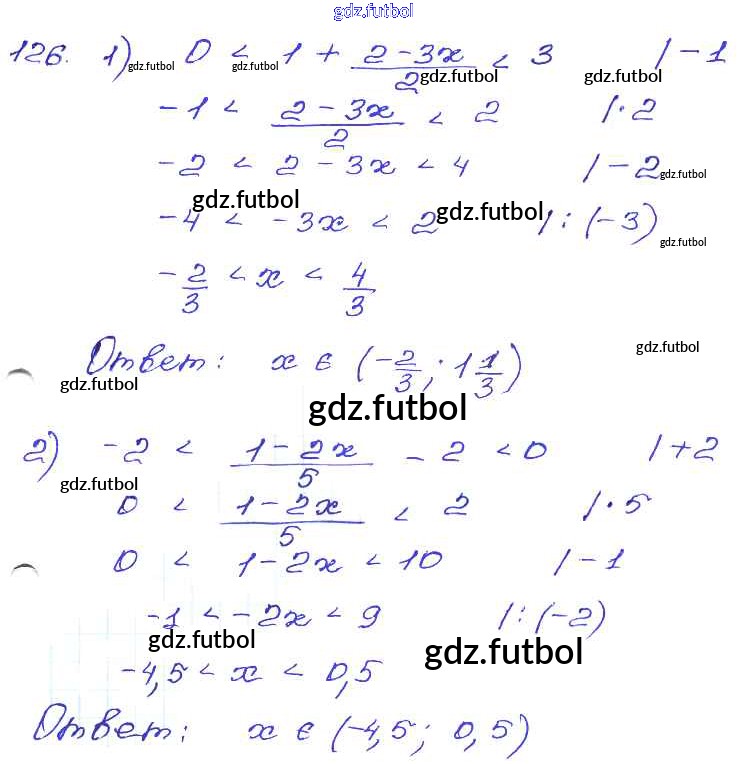 gdz.futbol
126. 1) 0 < 1 + (2-3x)/2 < 3 | -1
gdz.futbol gdz.futbol gdz.futbol gdz.futbol
-1 < (2-3x)/2 < 2 |·2
-2 < 2-3x < 4 |-2
gdz.futbol gdz.futbol
-4 < -3x < 2 |:(-3)
gdz.futbol gdz.futbol
-2/3 < x < 4/3
Ответ: x ∈ (-2/3; 1 1/3)
gdz.futbol
gdz.futbol
gdz.futbol
2) -2 < (1-2x)/5 - 2 < 0 |+2
gdz.futbol
0 < (1-2x)/5 < 2 |·5
0 < 1-2x < 10 |-1
-1 < -2x < 9 |:(-2)
gdz.futbol gdz.futbol
-4,5 < x < 0,5
Ответ: x ∈ (-4,5; 0,5)